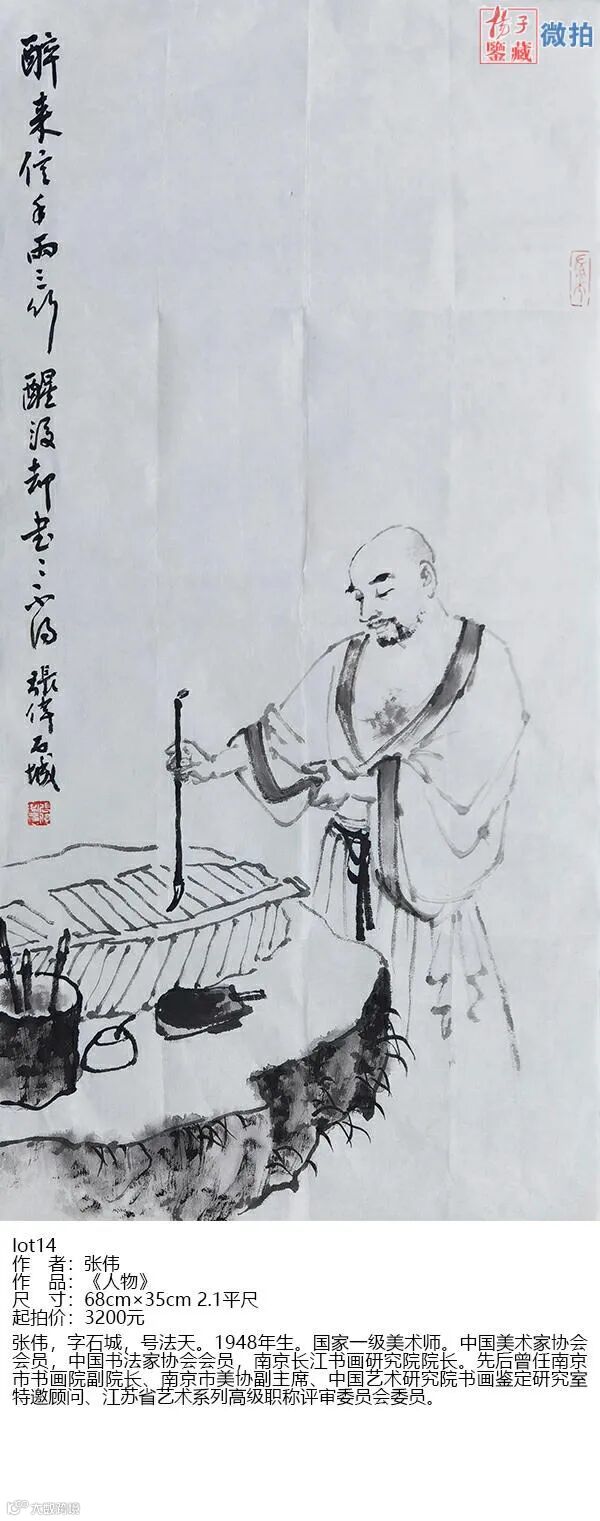 揚子
鑒藏
微拍
醉来信手两三行 醒後却书〻不得 張偉石城
lot14
作 者：张伟
作 品：《人物》
尺 寸：68cm×35cm 2.1平尺
起拍价：3200元
张伟，字石城，号法天。1948年生。国家一级美术师。中国美术家协会
会员，中国书法家协会会员，南京长江书画研究院院长。先后曾任南京
市书画院副院长、南京市美协副主席、中国艺术研究院书画鉴定研究室
特邀顾问、江苏省艺术系列高级职称评审委员会委员。
大感跨境